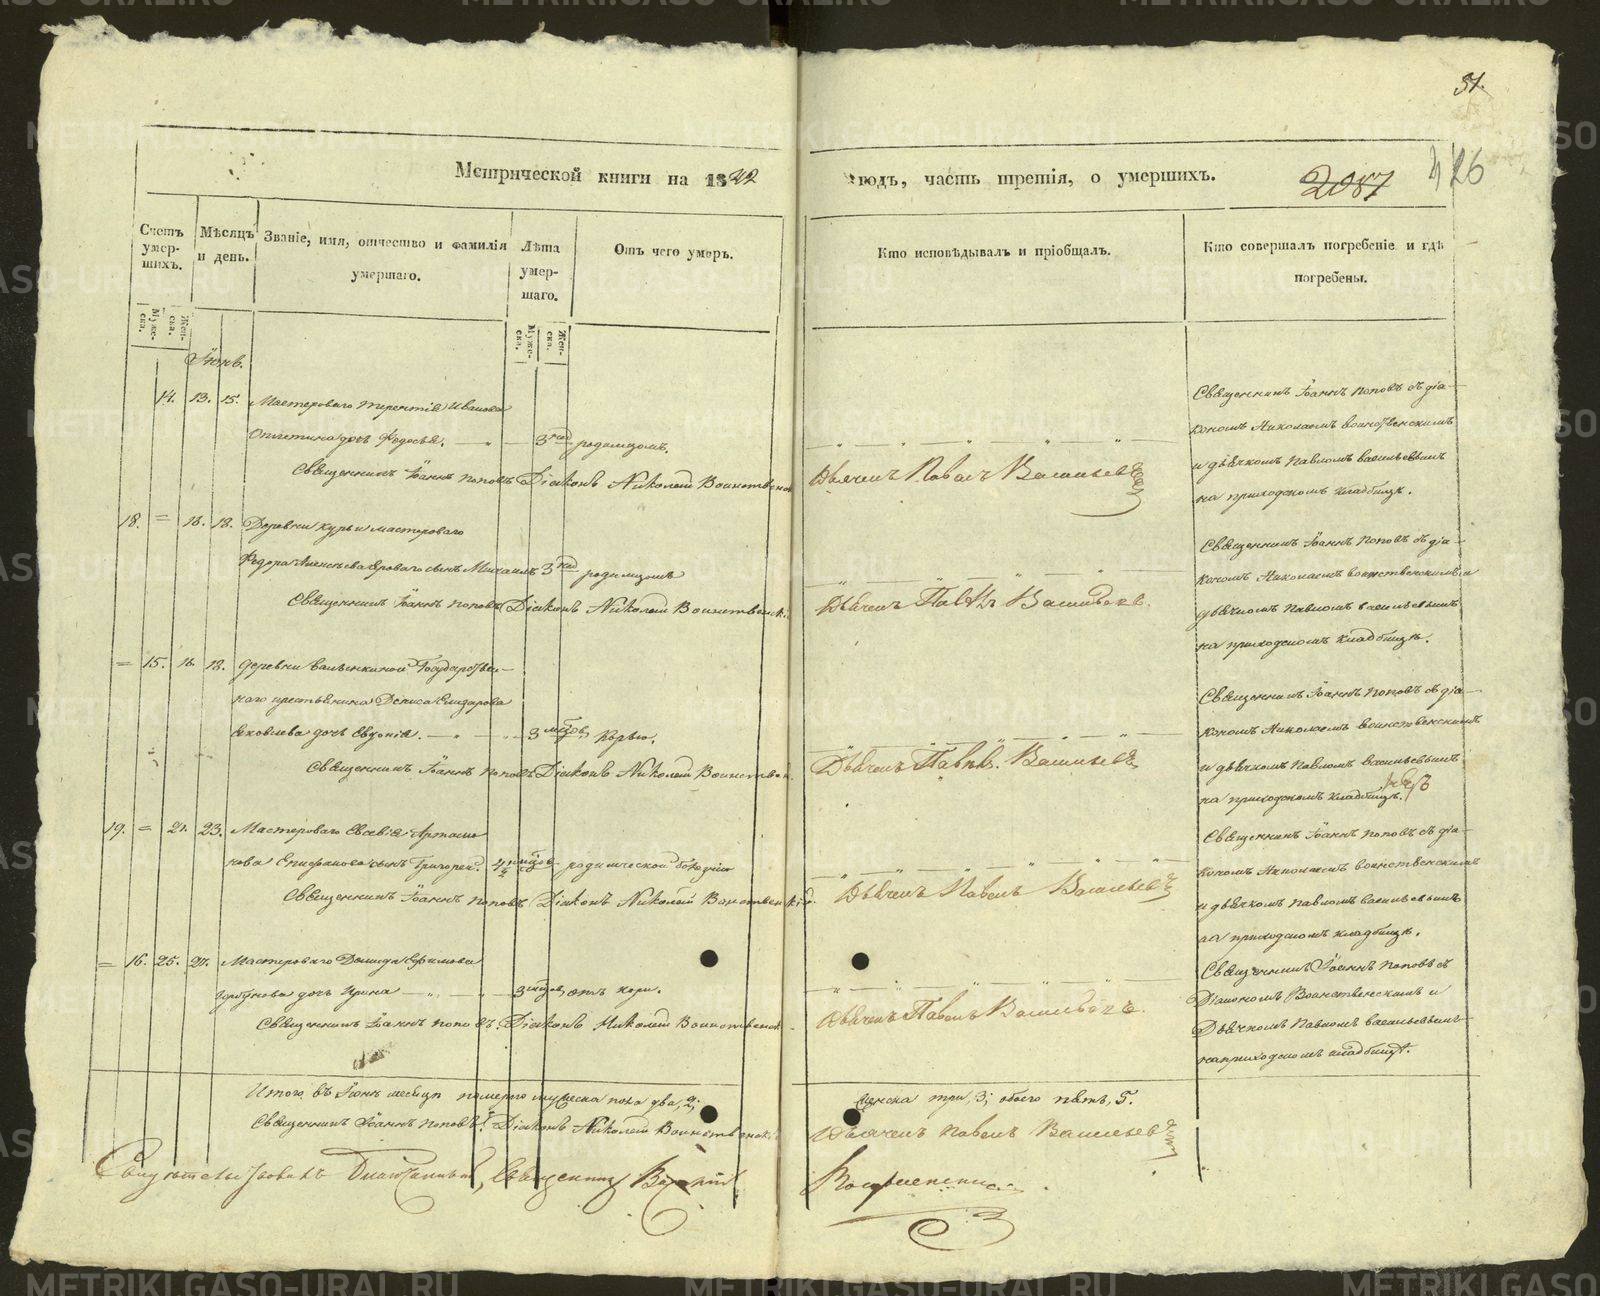 31.
Метрической книги на 1842
годъ, часть третія, о умершихъ.
2087
426
Счетъ умер-шихъ.
Мѣсяцъ и день.
Званіе, имя, отчество и фамилія умершаго.
Лѣта умер-шаго.
Отъ чего умеръ.
Кто исповѣдывалъ и пріобщалъ.
Кто совершалъ погребеніе и гдѣ погребены.
Муже-ска.
Жен-ска.
Муже-ска.
Жен-ска.
Іюнь.
14. 13. 15. Мастероваго Терентія Иванова
дочь Федосья. 3 родимцомъ.
Священникъ Іоаннъ Поповъ Діаконъ Николай Воинственск
Дьячекъ Павелъ Васильевъ
Священникъ Іоаннъ Поповъ съ діа-
кономъ Николаемъ Воинственскимъ
и дьячкомъ Павломъ Васильевымъ
на приходскомъ кладбищѣ.
18. = 16. 18. Деревни Курьи мастероваго
Федора сынъ Михаилъ 3 родимцомъ
Священникъ Іоаннъ Поповъ Діаконъ Николай Воинственскі
Дьячекъ Павелъ Васильевъ.
Священникъ Іоаннъ Поповъ съ діа-
кономъ Николаемъ Воинственскимъ и
дьячкомъ Павломъ Васильевымъ
на приходскомъ кладбищѣ.
= 15. 16. 18. деревни Государствен-
наго крестьянина Дениса Елизарова
Яковлева дочь Евгенія. 3 мѣсяц. Корью.
Священникъ Іоаннъ Поповъ Діаконъ Николай Воинственск.
Дьячекъ Павелъ. Васильевъ
Священникъ Іоаннъ Поповъ съ діа-
кономъ Николаемъ Воинственскимъ
и дьячкомъ Павломъ Васильевымъ
на приходскомъ кладбищѣ.
19. = 21. 23. Мастероваго Евсевія Артамо
нова Епифанова сынъ Григорей. 4½ родимческой болѣзни
Священникъ Іоаннъ Поповъ Діаконъ Николай Воинственскій.
Дьячекъ Павелъ Васильевъ
Священникъ Іоаннъ Поповъ съ діа-
кономъ Николаемъ Воинственскимъ
и дьячкомъ Павломъ Васильевымъ
на приходскомъ кладбищѣ.
= 16. 25. 27. Мастероваго Ефимова
дочь Ирина 3 отъ кори.
Священникъ Іоаннъ Поповъ. Діаконъ Николай Воинственск.
Дьячекъ Павелъ Васильевъ.
Священникъ Іоаннъ Поповъ съ
Діакономъ Воинственскимъ и
Дьячкомъ Павломъ Васильевымъ
на приходскомъ кладбищѣ.
Итого въ Іюнѣ месяцѣ померло мужеска пола два, 2;
женска три, 3; обоего пять, 5.
Священникъ Іоаннъ Поповъ. Діаконъ Николай Воинственскі
Дьячекъ Павелъ Васильевъ
Свидѣтельствовалъ Благочинный, Священникъ
METRIKI.GASO-URAL.RU